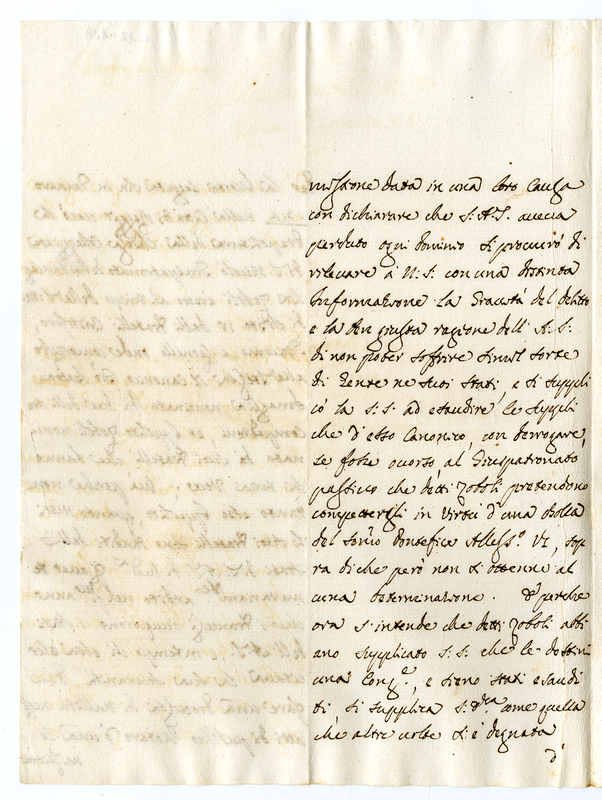 missione data in una loro Causa
con dichiarare che S. A. S. aveva
perduto ogni dominio si procurò di
rilevare à N. S. con una distinta
Informazione la gravità del delitto
e la ben giusta ragione dell' A. S.
di non poter soffrire simil sorte
di Gente ne suoi stati, e si suppli
cò la S. S. ad esaudire le suppli
che d'esso Canonico, con derrogare,
se fosse occorso, al Giuspatronato
che detti Zoboli pretendono
competergli in virtù d'una Bolla
del Pontefice Aless.º VI, sop
ra di che però non si ottenne al
cuna determinazione. E perche
ora s'intende che detti Zoboli abbi
ano supplicato S. S. che le destini
una Cong.e, e sieno stati esaudi
ti, si supplica S. come quella
che altre volte si è degnata
d'